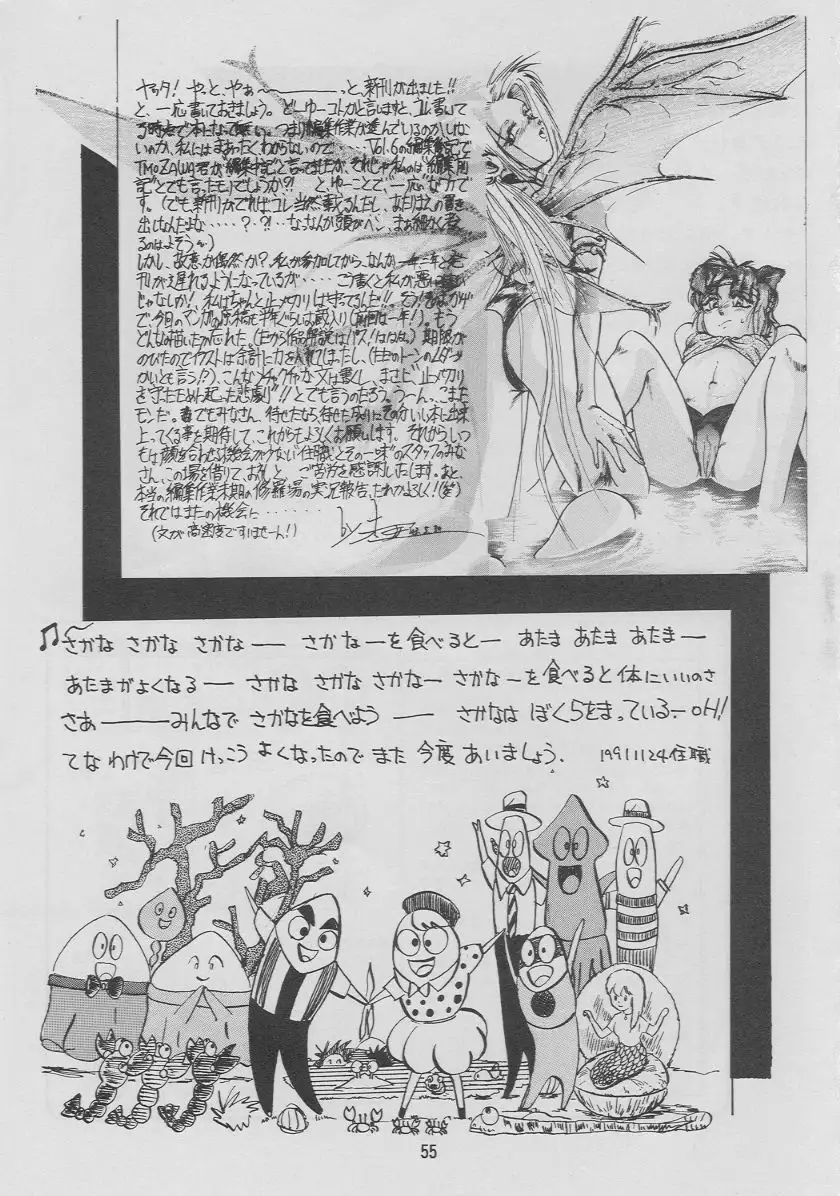 ヤッタ! やっと、やぁ〜――――っと、新刊が出ました!!
と、一応書いておきましょう。どーゆーコトかと言いますと、コレ書いて
る時点で本になって無い。つまり編集作業が進んでいるのかいない
のか、私にはまぁったくわからないので・・・・・Vol.6の編集後記で
TMOZAWA君が
記"とでも言ったモリでしょうか?! とゆーことで、一応"なワケで
す。(でも新刊がでればコレ当然載るんだし、あたりまえの書き
出しなんだよな・・・・・?・?!・・なっなんか頭がヘン、まぁ細かく考え
るのはよそう)
しかし、故意か偶然か?、私が参加してから、なんか
刊が遅れるようになっているが・・・・・こう書くと私が悪い
じゃなしか!、私はちゃんと〆メ切りは守ってるんだ!!
で、今日のマンガの原稿も半年ぐらいは蔵入り(前回は一年!)。もう
どんなの描いたか忘れた(だから作品解説はパス!ははは。)期限が
のびたのでイラストは余計に力を入れてしまったし、(
かいとも言う!?)、こんなメチャクチャな文は書くし、まさに"〆メ切り
を守ったために起った悲劇"!!とでも言うのだろう。うーん、こまった
モンだ。まぁでもみなさん、待せたなら、待せたなりにそのかいし本に出来
上ってくる事を期待して、これからもよろしくお願いします。それから、いつ
もは顔を合わせない機会がすくない「住職」とその一味のスタッフのみな
さん、この場を借りて、お礼と、ご苦労を感謝いたします。あと、
本当の編集作業末期の修羅場の実況報告、だれかよろしく!(笑)
それではまたの機会に・・・・・・・・
(文が高密度ですいませーん!)
by
♫〜さかな さかな さかな―― さかなーを食べると― あたま あたま あたま―
あたまがよくなる―― さかな さかな さかなー さかな―を食べると体にいいのさ
さあ―――みんなで さかなを食べよう ―― さかなは ぼくらをまっている―OH!
てな わけで今回 けっこう よくなったので また 今度 あいましょう. 19911124住職
55